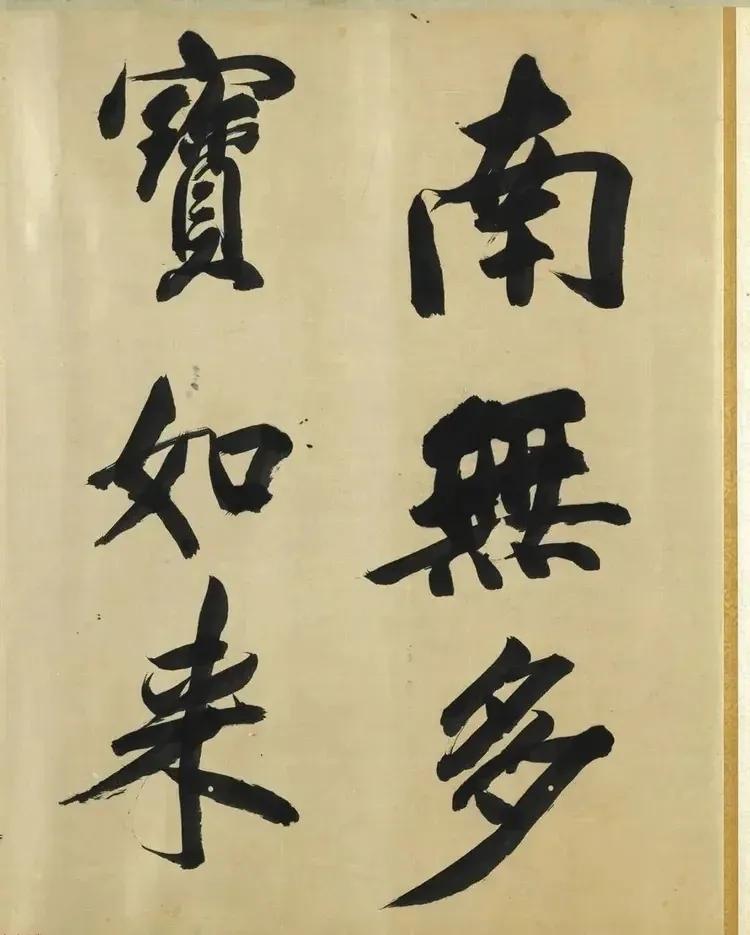 南無多
寶如来